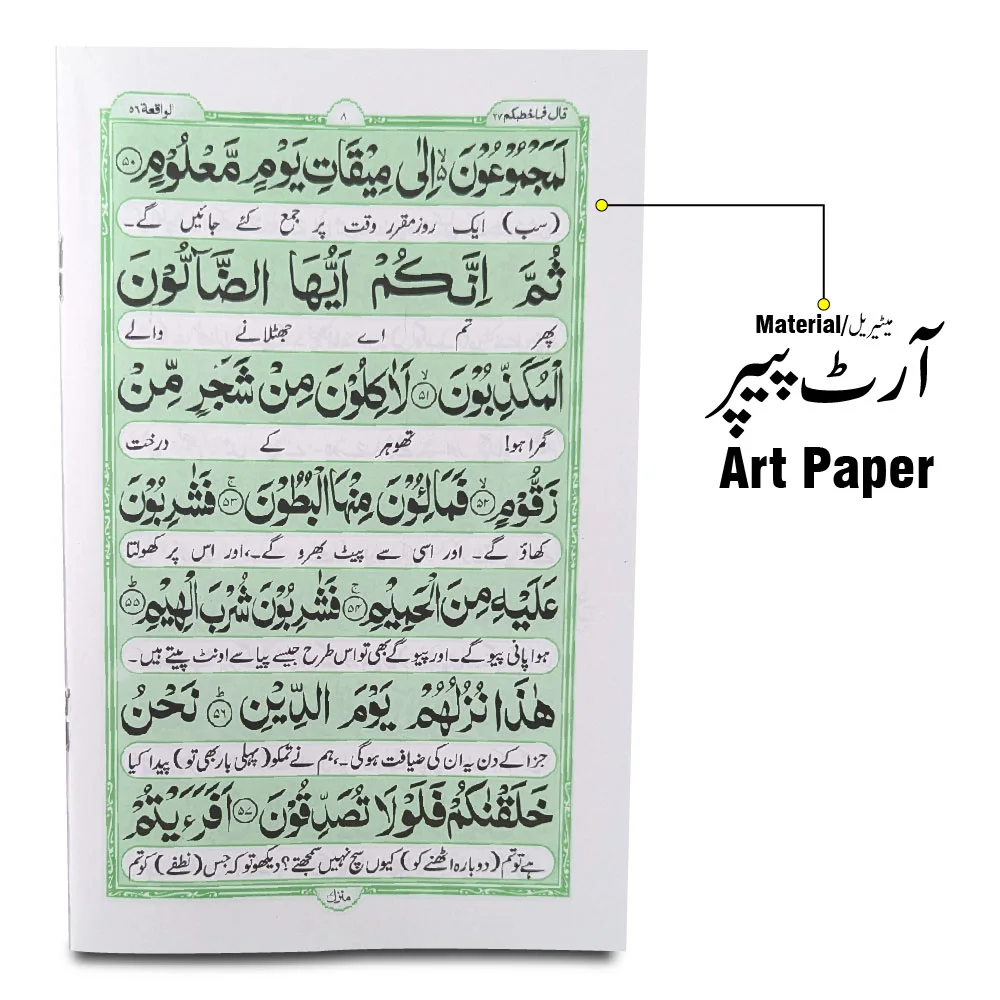 قال فما خطبکم ۲۷
۸
لواقعة ۵۶
لَمَجْمُوْعُوْنَ ۙ اِلٰى مِيْقَاتِ يَوْمٍ مَّعْلُوْمٍ ۵۰
(سب) ایک روز مقرر وقت پر جمع کئے جائیں گے۔
ثُمَّ اِنَّكُمْ اَيُّهَا الضَّآلُّوْنَ
پھر تم اے جھٹلانے والے
الْمُكَذِّبُوْنَ ۙ۵۱ لَاٰكِلُوْنَ مِنْ شَجَرٍ مِّنْ
گمراہو! تھوہر کے درخت
زَقُّوْمٍ ۙ۵۲ فَمَالِئُوْنَ مِنْهَا الْبُطُوْنَ ۚ۵۳ فَشٰرِبُوْنَ
کھاؤ گے۔ اور اسی سے پیٹ بھرو گے۔، اور اس پر کھولتا
عَلَيْهِ مِنَ الْحَمِيْمِ ۚ۵۴ فَشٰرِبُوْنَ شُرْبَ الْهِيْمِ ؕ۵۵
ہوا پانی پیو گے۔ اور پیو گے بھی تو اس طرح جیسے پیاسے اونٹ پیتے ہیں۔
هٰذَا نُزُلُهُمْ يَوْمَ الدِّيْنِ ؕ۵۶ نَحْنُ
جزا کے دن یہ ان کی ضیافت ہوگی۔، ہم نے تمکو (پہلی بار بھی تو) پیدا کیا
خَلَقْنٰكُمْ فَلَوْلَا تُصَدِّقُوْنَ ۵۷ اَفَرَءَيْتُمْ
ہے تو تم (دوبارہ اٹھنے کو) کیوں سچ نہیں سمجھتے؟ دیکھو تو کہ جس (نطفے) کو تم
Material/میٹیریل
آرٹ پیپر
Art Paper